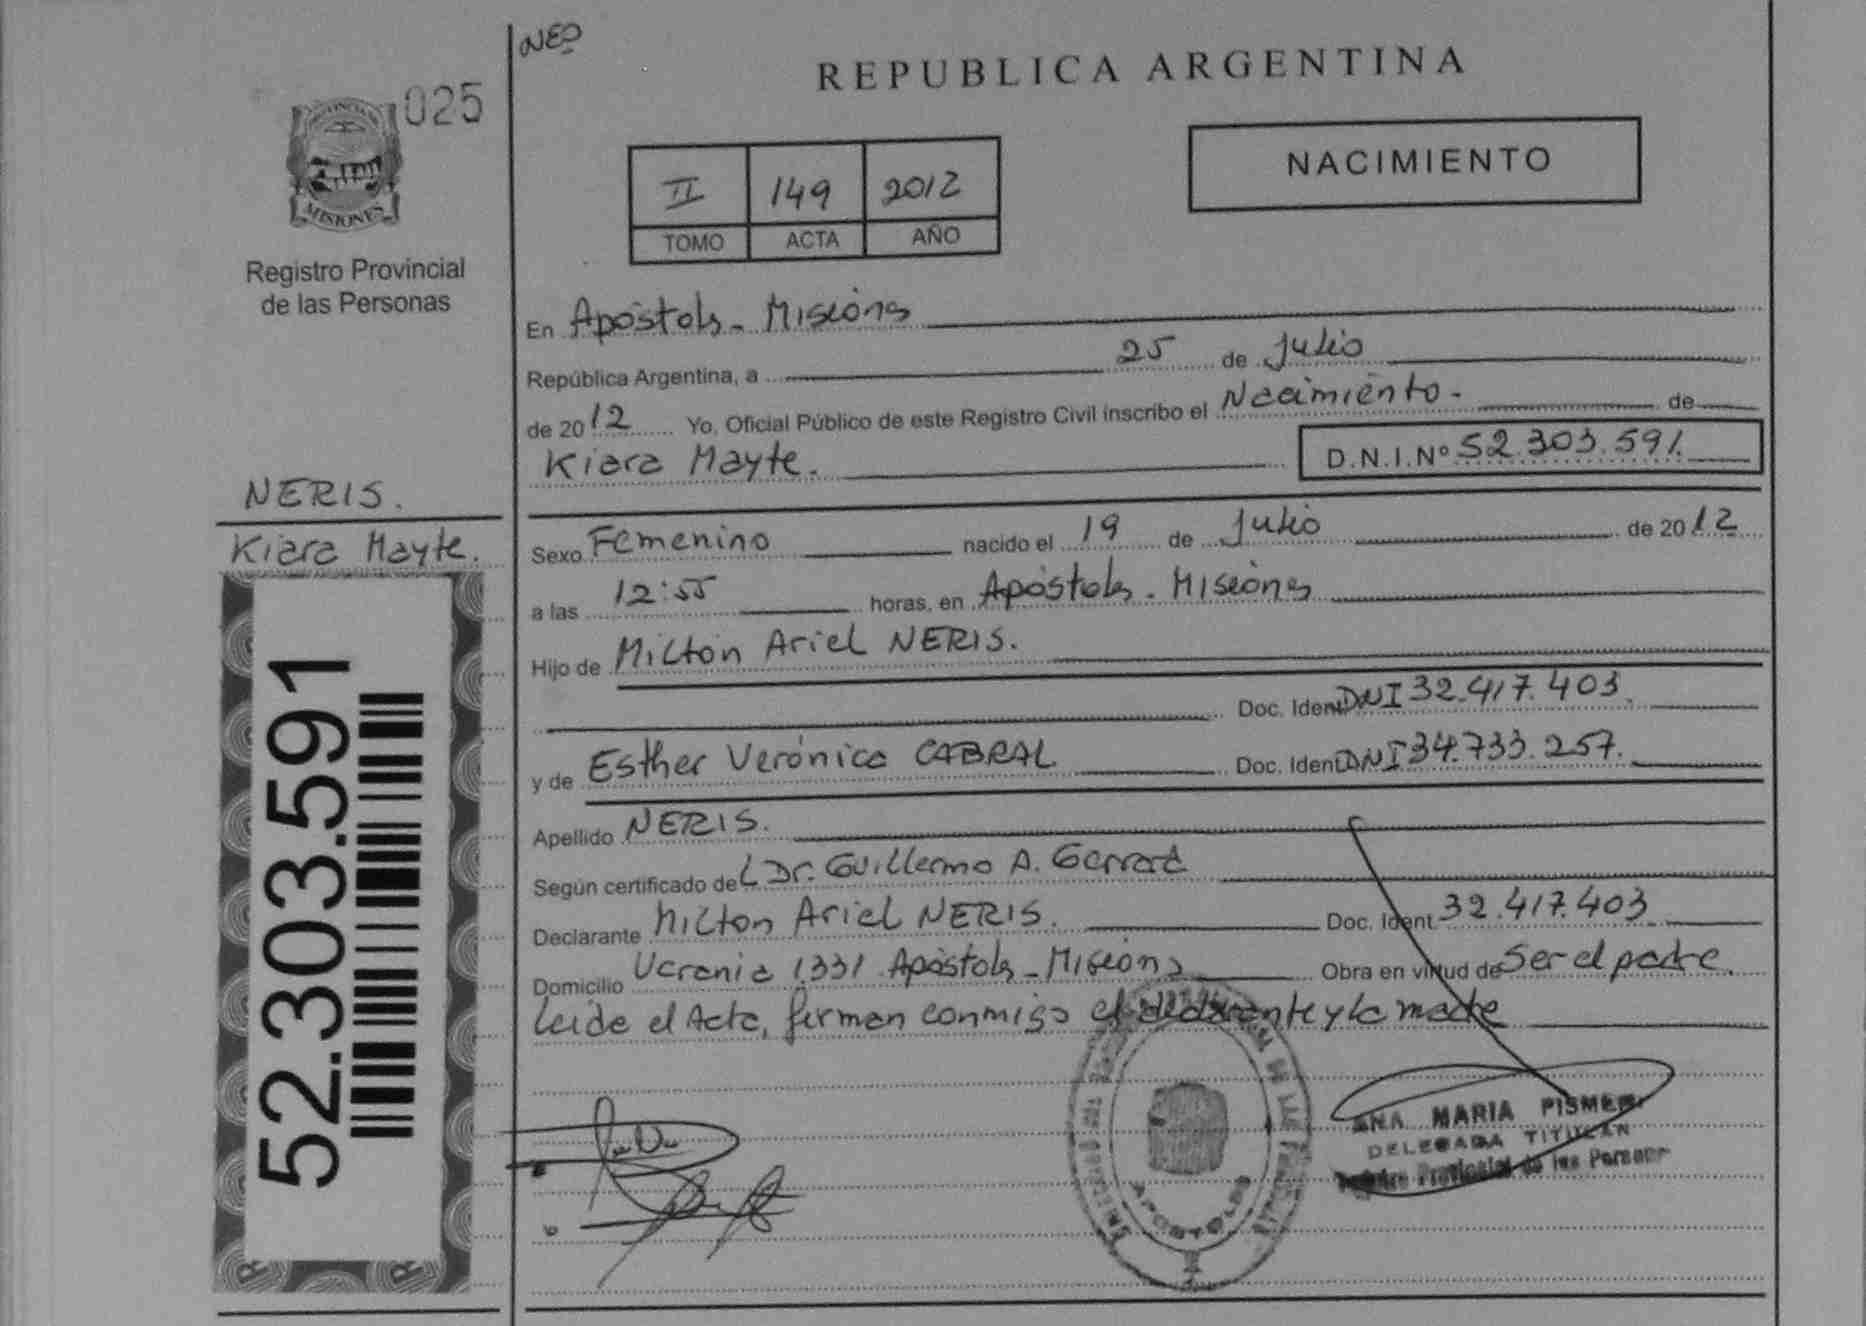 025
NEO
REPUBLICA ARGENTINA
NACIMIENTO
II 149 2012
TOMO ACTA AÑO
MISIONES
Registro Provincial
de las Personas
NERIS.
Kiara Mayte.
52.303.591
En Apóstoles - Misiones
República Argentina, a 25 de Julio
de 2012 Yo, Oficial Público de este Registro Civil inscribo el Nacimiento - de
Kiara Mayte. D.N.I.Nº 52.303.591.
Sexo Femenino nacido el 19 de Julio de 2012
a las 12:55 horas, en Apóstoles - Misiones
Hijo de Milton Ariel NERIS.
Doc. Ident DNI 32.417.403.
y de Esther Verónica CABRAL Doc. Ident DNI 34.733.257.
Apellido NERIS.
Según certificado del Dr. Guillermo A.
Declarante Milton Ariel NERIS. Doc. Ident. 32.417.403
Domicilio Ucrania 1331 Apóstoles - Misiones Obra en virtud de Ser el padre.
Leída el Acta, firman conmigo el declarante y la madre
APOSTOLES
ANA MARIA
DELEGADA TITULAR
Registro Provincial de las Personas